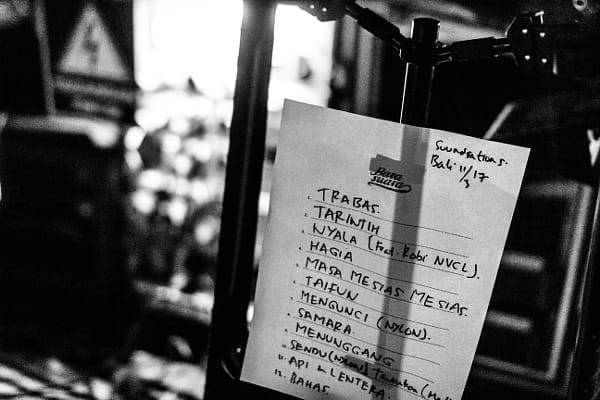 Soundsations.
Bali 11/17
3
Bara
suara
. TRABAS.
. TARINTIH
. NYALA (Feat. Robi NVCL).
. HAGIA
. MASA MESIAS MESIAS.
. TAIFUN
. MENGUNCI (NYLON).
. SAMARA.
. MENUNGGANG
. SENDU (NYLON)
11. API & LENTERA.
12. BAHAS.